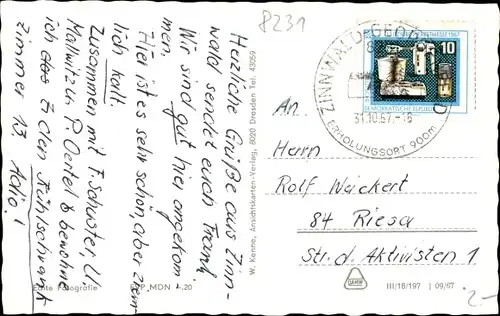 8231
Herzliche Grüße aus Zinn-
wald sendet euch Frank
Wir sind gut hier angekom-
men,
Hier ist es sehr schön, aber ziem-
lich kalt.
Zusammen mit F. Schuster, U.
Mallwitz u. P. Oertel bewohne
ich das Zimmer 13. Adio!
Echte Fotografie
W. Kenne, Ansichtskarten-Verlag, 8020 Dresden Tel. 43059
ZINNWALD-GEORGENFELD
31.10.67.-16
ERHOLUNGSORT 900m
10
DEUTSCHE DEMOKRATISCHE REPUBLIK
An.
Herrn
Rolf Weickert
84 Riesa
Str. d. Aktivisten 1
III/18/197 09/67
2-